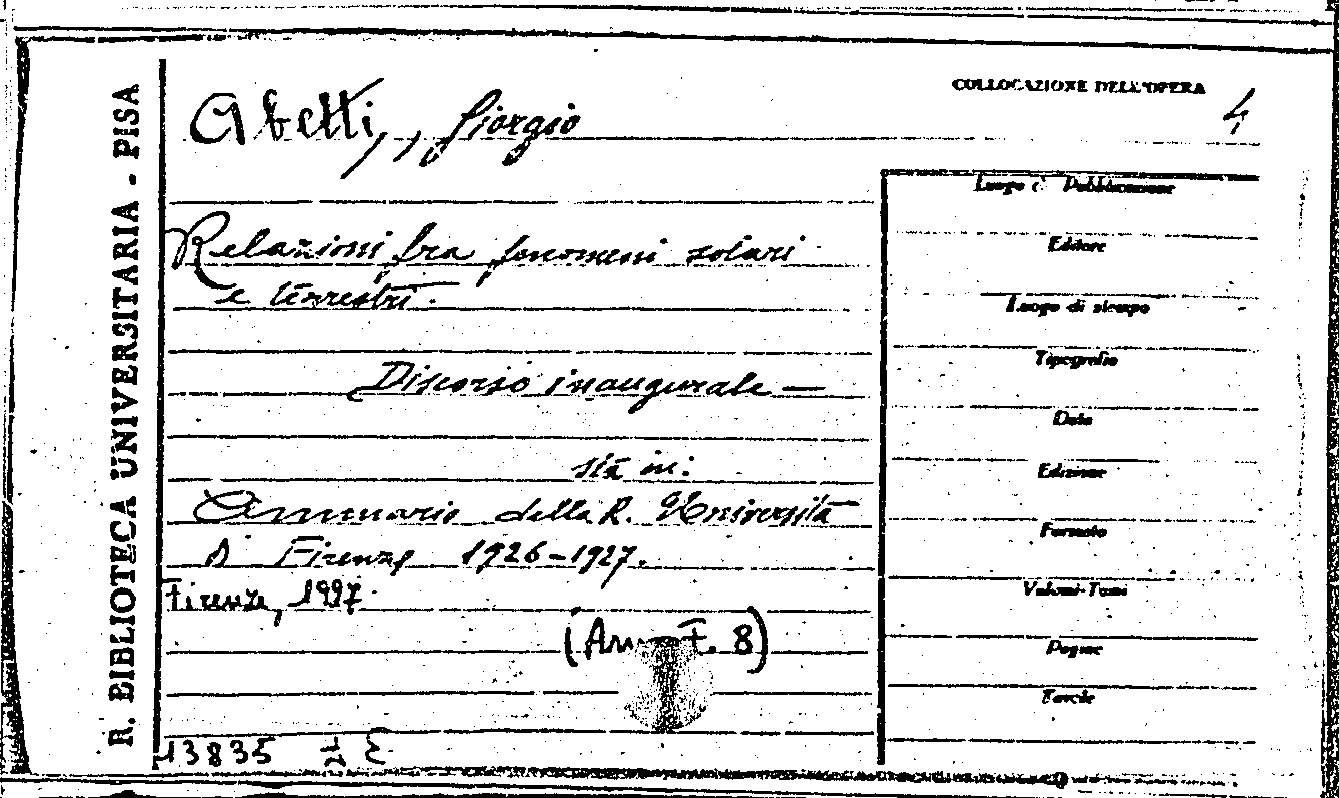 R. BIBLIOTECA UNIVERSITARIA - PISA
COLLOCAZIONE DELL'OPERA
4
Abetti, Giorgio
Relazioni fra fenomeni solari
e terrestri.
Discorso inaugurale —
sta in:
Annuario della R. Università
di Firenze 1926-1927.
Firenze, 1927.
(Ann. F. 8)
13835
Luogo di Pubblicazione
Editore
Luogo di stampo
Tipografia
Data
Edizione
Formato
Volumi-Tomi
Pagine
Tavole